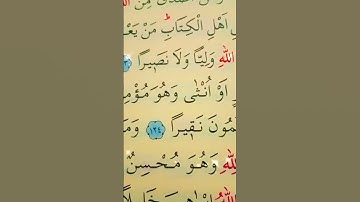 اَصْدَقُ مِنَ
اَهْلِ الْكِتَابِۜ مَنْ يَعْ
اللّٰهِ وَلِيًّا وَلَا نَصٖيراً
اَوْ اُنْثٰى وَهُوَ مُؤْمِ
لَمُونَ نَقٖيراً ﴿١٢٤﴾ وَمَ
لِلّٰهِ وَهُوَ مُحْسِنٌ